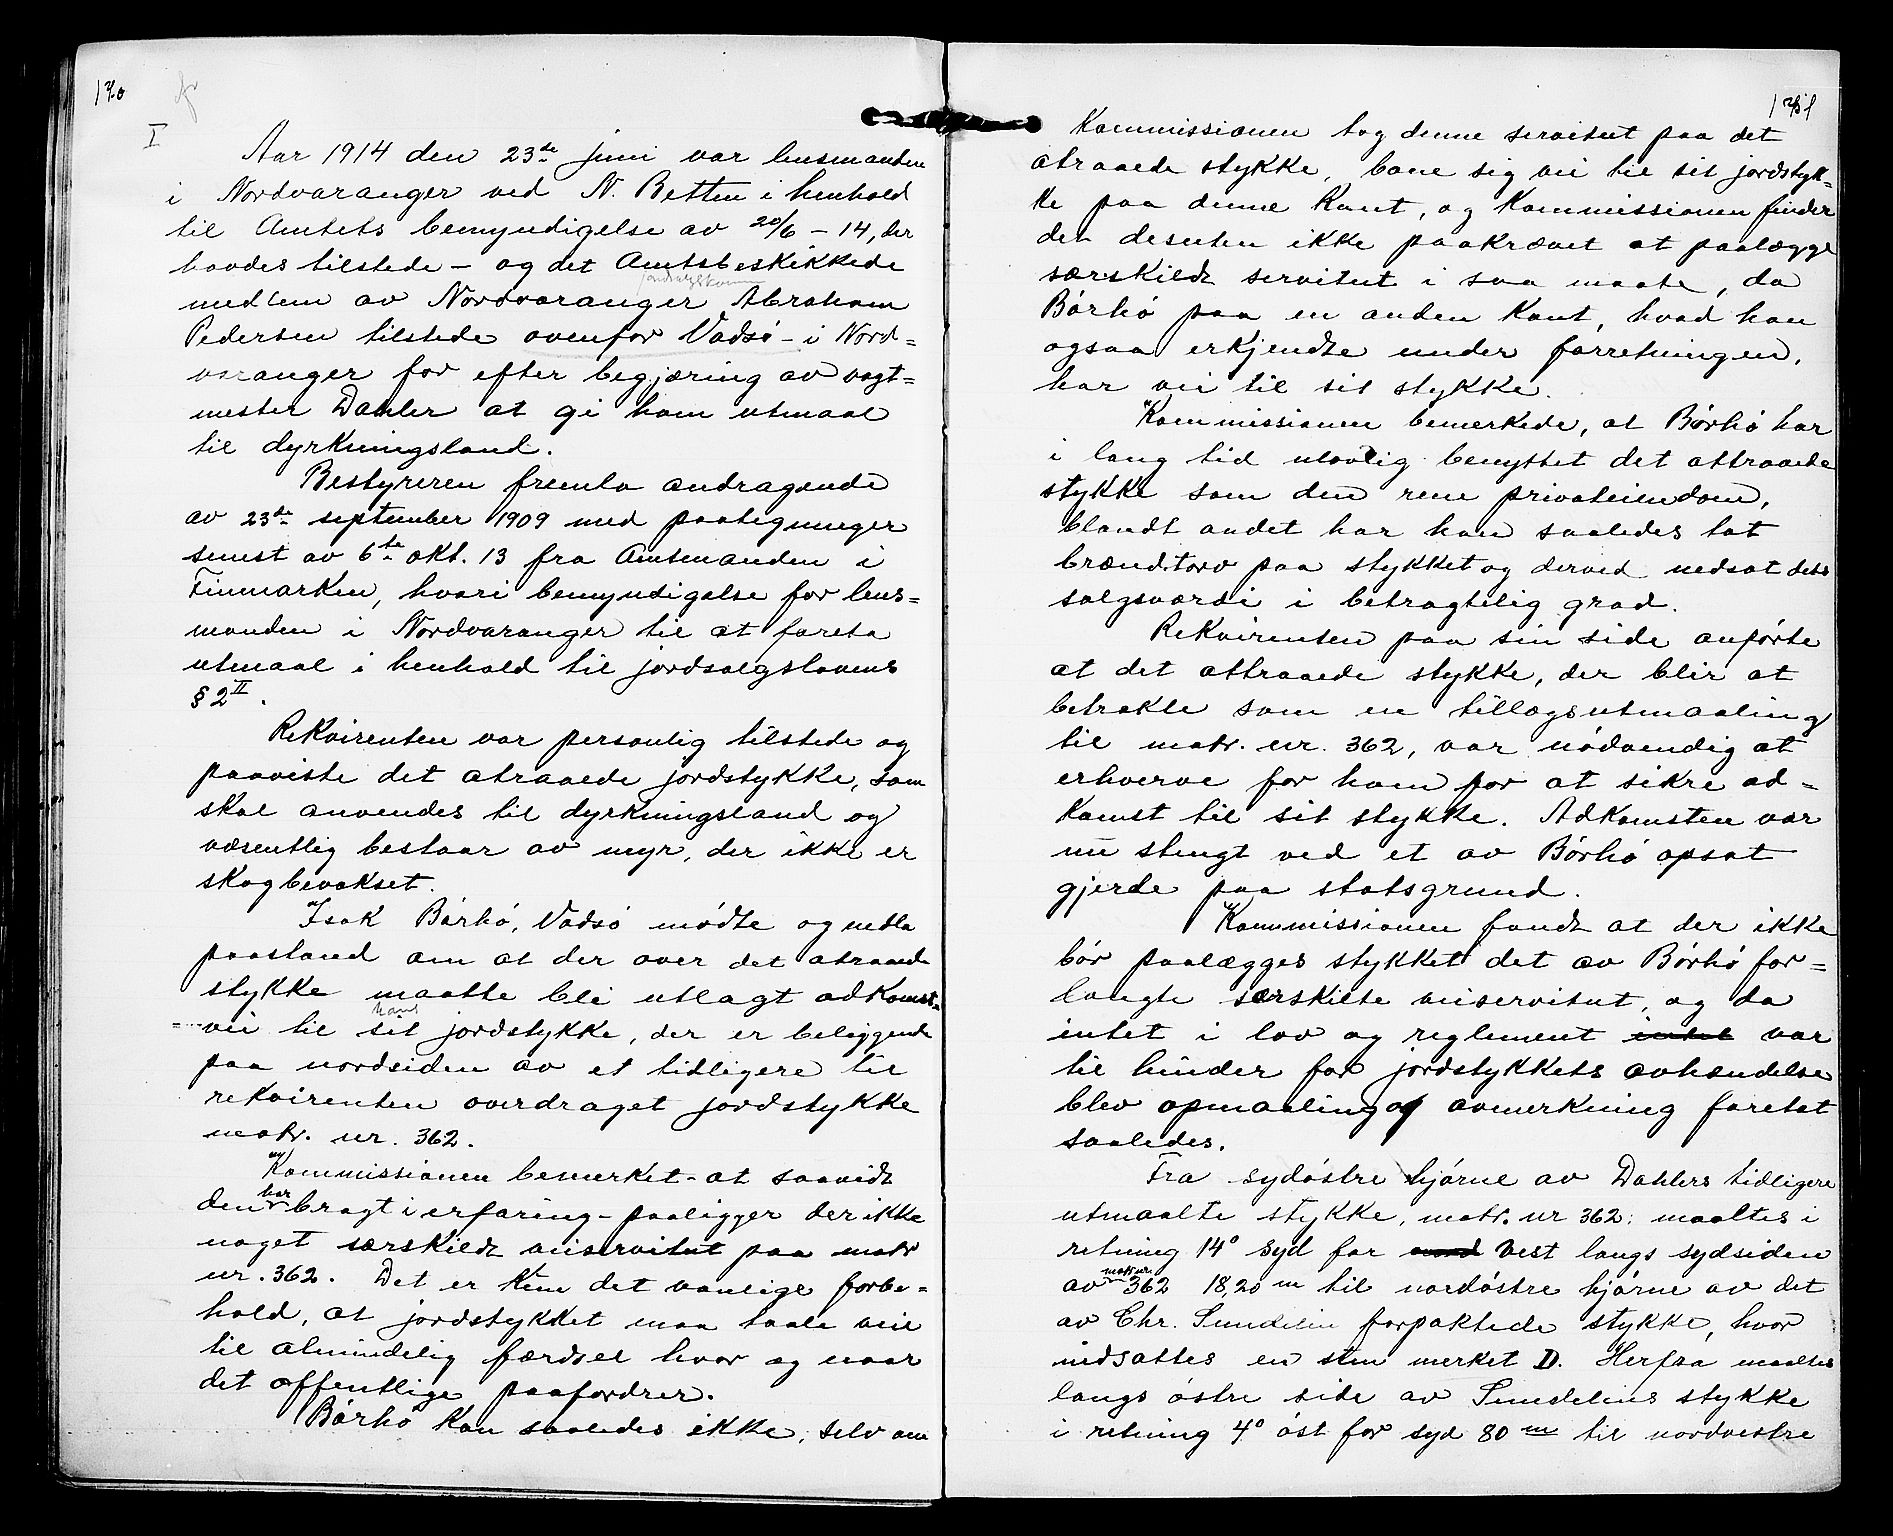 170
I
Aar 1914 den 23de juni var lensmanden
i Nordvaranger ved N. Betten i henhold
til Amtets bemyndigelse av 20/6 - 14, der
havdes tilstede - og det Amtsbeskikkede
medlem av Nordvaranger jordsalgskom Abraham
Pedersen tilstede ovenfor Vadsö - i Nord=
varanger for efter begjæring av vagt=
mester Dahler at gi ham utmaal
til dyrkningsland.
Bestyreren fremla andragende
av 23de september 1909 med paategninger
senest av 6te okt. 13 fra Amtmanden i
Finmarken, hvori bemyndigelse for lens=
manden i Nordvaranger til at foreta
utmaal i henhold til jordsalgslovens
§ 2 II.
Rekvirenten var personlig tilstede og
paaviste det atraaede jordstykke, som
skal anvendes til dyrkningsland og
væsentlig bestaar av myr, der ikke er
skogbevokset.
Isak Børhö, Vadsö mødte og nedla
paastand om at der over det atraaede
stykke maatte bli utlagt adkomst=
=vei til sit hans jordstykke, der er beliggende
paa nordsiden av et tidligere til
rekvirenten overdraget jordstykke
matr. nr. 362.
Kommissionen bemerket - at saavidt
den har bragt i erfaring - paaligger der ikke
noget særskildt veiservitut paa matr
nr. 362. Det er kun det vanlige forbe=
hold, at jordstykket maa taale vei
til almindelig færdsel hvor og naar
det offentlige paafordrer.
Børhö kan saaledes ikke, selv om
171
Kommissionen tog denne servitut paa det
atraaede stykke, bane sig vei til sit jordstyk=
ke paa denne kant, og Kommissionen finder
det desuten ikke paakrævet at paalægge
særskildt servitut i saa maate, da
Børhö paa en anden kant, hvad han
ogsaa erkjendte under forretningen,
har vei til sit stykke.
Kommissionen bemerkede, at Børhö har
i lang tid ulovlig benyttet det attraaede
stykke som den rene privateiendom,
blandt andet har han saaledes tat
brændtorv paa stykket og derved nedsat dets
salgsværdi i betragtelig grad.
Rekvirenten paa sin side anførte
at det attraaede stykke, der blir at
betrakte som en tillægsutmaaling
til matr. nr. 362, var nödvendig at
erhverve for ham for at sikre ad=
komst til sit stykke. Adkomsten var
nu stengt ved et av Børhö opsat
gjerde paa statsgrund.
Kommissionen fandt at der ikke
bör paalægges stykket det av Børhö for=
langte særskilte veiservitut, og da
intet i lov og reglement intet var
til hinder for jordstykkets avhændelse
blev opmaaling og avmerkning foretat
saaledes.
Fra sydöstre hjörne av Dahlers tidligere
utmaalte stykke, matr. nr 362, maaltes i
retning 14° Syd for vest langs sydsiden
av matr nr. 362 18,20 m til nordöstre hjörne av det
av Chr. Sundelin forpaktede stykke, hvor
nedsattes en sten merket D. Herfra maaltes
langs östre side av Sundelins stykke
i retning 4° öst for syd 80 m til nordvestre